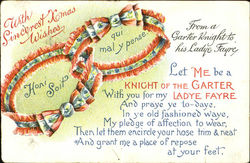 With
Sincerest Xmas
Wishes.
Honi Soit
qui
mal y pense
From a
Garter Knight to
his Ladye Fayre
Let Me be a
KNIGHT OF THE GARTER
With you for my LADYE FAYRE
And praye ye to-daye,
In ye old fashioned waye,
My pledge of affection to wear,
Then let them encircle your hose trim & neat
And grant me a place of repose
at your feet.